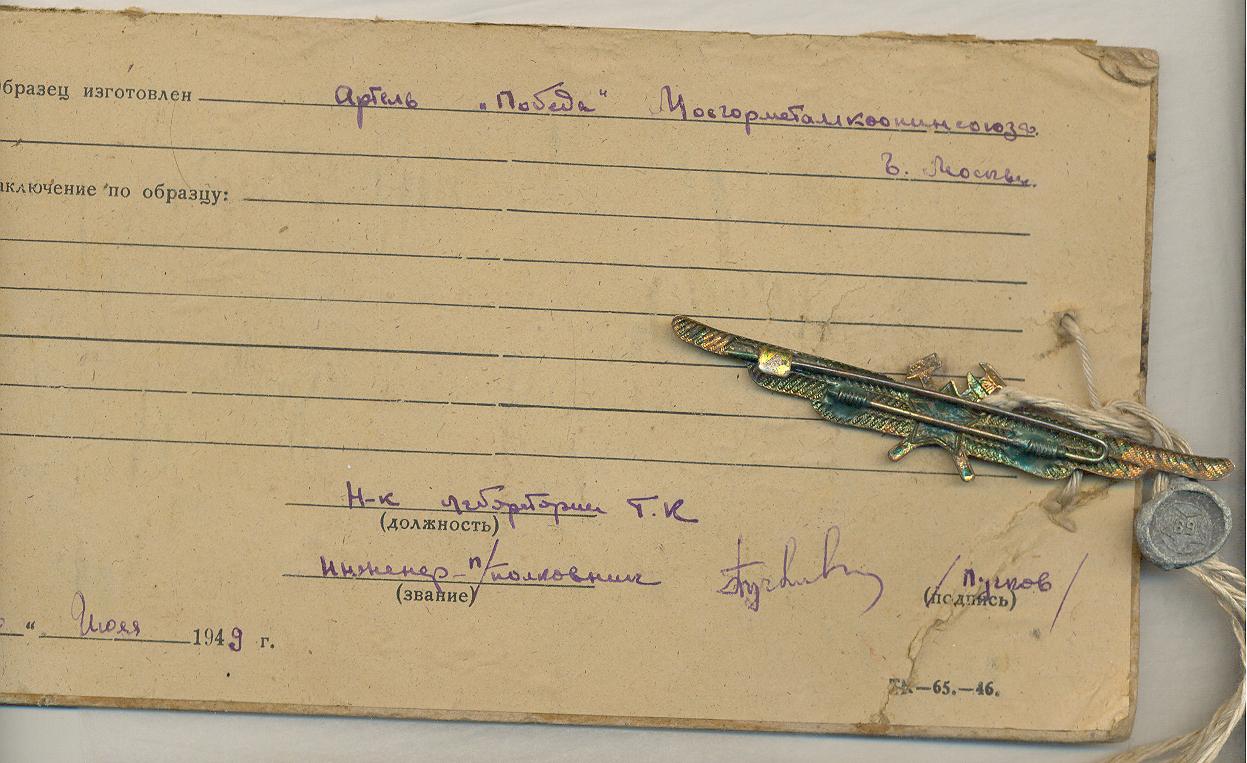 бразец изготовлен Артель „Победа“ Мосгорметалкоопинсоюза
г. Москвы.
аключение по образцу:
Н-к лаборатории Т.К
(должность)
Инженер-п/полковник
(звание)
/ Пучков /
(подпись)
“ Июля 1949 г.
ТК—65.—46.
89